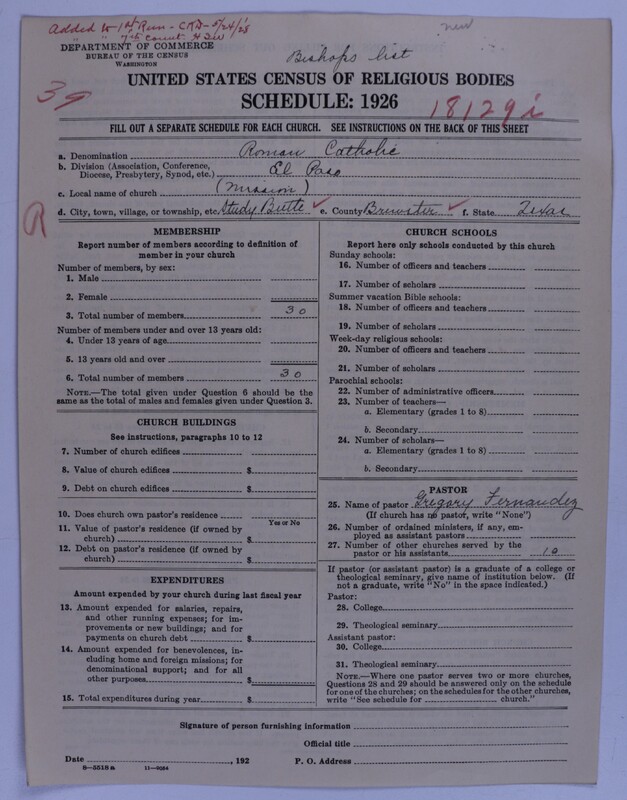 Added to 1st Run - CRD - 5/24/28
" " 7th Count
DEPARTMENT OF COMMERCE
BUREAU OF THE CENSUS
WASHINGTON
new
Bishops list
UNITED STATES CENSUS OF RELIGIOUS BODIES
SCHEDULE: 1926
18129
FILL OUT A SEPARATE SCHEDULE FOR EACH CHURCH. SEE INSTRUCTIONS ON THE BACK OF THIS SHEET
a. Denomination Roman Catholic
b. Division (Association, Conference, Diocese, Presbytery, Synod, etc.) El Paso
c. Local name of church (Mission)
R
d. City, town, village, or township, etc. Study Butte ✓ e. County Brewster ✓ f. State Texas
MEMBERSHIP
Report number of members according to definition of
member in your church
Number of members, by sex:
1. Male
2. Female
3. Total number of members 30
Number of members under and over 13 years old:
4. Under 13 years of age
5. 13 years old and over
6. Total number of members 30
NOTE.—The total given under Question 6 should be the
same as the total of males and females given under Question 3.
CHURCH BUILDINGS
See instructions, paragraphs 10 to 12
7. Number of church edifices
8. Value of church edifices $
9. Debt on church edifices $
10. Does church own pastor's residence
Yes or No
11. Value of pastor's residence (if owned by
church) $
12. Debt on pastor's residence (if owned by
church) $
EXPENDITURES
Amount expended by your church during last fiscal year
13. Amount expended for salaries, repairs,
and other running expenses; for im-
provements or new buildings; and for
payments on church debt $
14. Amount expended for benevolences, in-
cluding home and foreign missions; for
denominational support; and for all
other purposes $
15. Total expenditures during year $
CHURCH SCHOOLS
Report here only schools conducted by this church
Sunday schools:
16. Number of officers and teachers
17. Number of scholars
Summer vacation Bible schools:
18. Number of officers and teachers
19. Number of scholars
Week-day religious schools:
20. Number of officers and teachers
21. Number of scholars
Parochial schools:
22. Number of administrative officers
23. Number of teachers—
a. Elementary (grades 1 to 8)
b. Secondary
24. Number of scholars—
a. Elementary (grades 1 to 8)
b. Secondary
PASTOR
25. Name of pastor Gregory Fernandez
(If church has no pastor, write "None")
26. Number of ordained ministers, if any, em-
ployed as assistant pastors
27. Number of other churches served by the
pastor or his assistants 10
If pastor (or assistant pastor) is a graduate of a college or
theological seminary, give name of institution below. (If
not a graduate, write "No" in the space indicated.)
Pastor:
28. College
29. Theological seminary
Assistant pastor:
30. College
31. Theological seminary
NOTE.—Where one pastor serves two or more churches,
Questions 28 and 29 should be answered only on the schedule
for one of the churches; on the schedules for the other churches,
write "See schedule for church."
Signature of person furnishing information
Official title
Date , 192 P. O. Address
8—5518a 11—9054